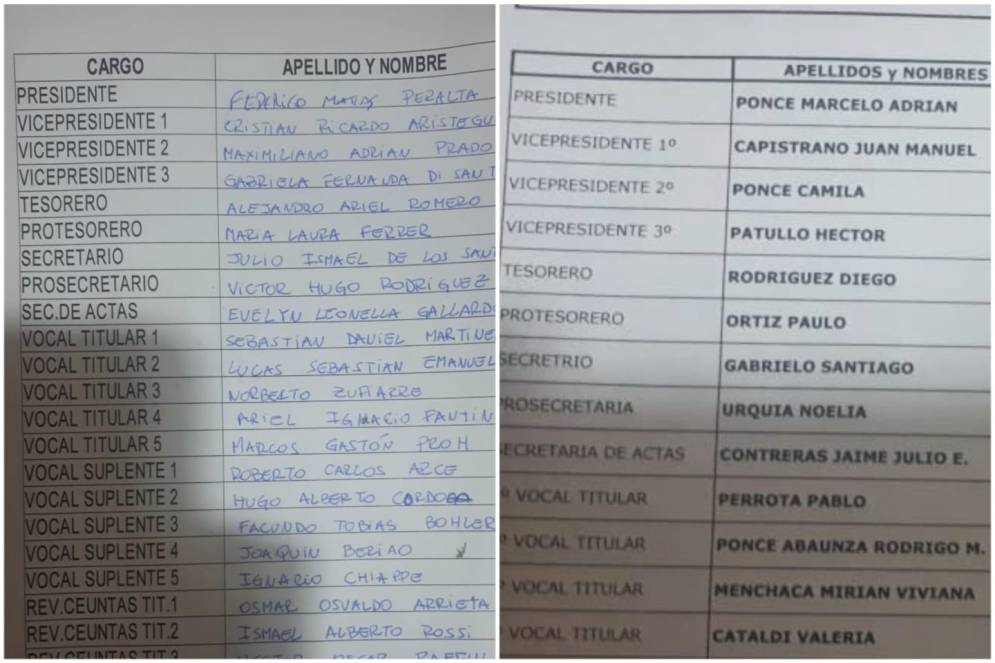 CARGO APELLIDO Y NOMBRE
PRESIDENTE FEDERICO MATIAS PERALTA
VICEPRESIDENTE 1 CRISTIAN RICARDO ARISTEGU
VICEPRESIDENTE 2 MAXIMILIANO ADRIAN PRADO
VICEPRESIDENTE 3 GABRIELA FERNANDA DI SANT
TESORERO ALEJANDRO ARIEL ROMERO
PROTESORERO MARIA LAURA FERRER
SECRETARIO JULIO ISMAEL DE LOS SAN
PROSECRETARIO VICTOR HUGO RODRIGUEZ
SEC.DE ACTAS EVELYN LEONELLA GALLARDO
VOCAL TITULAR 1 SEBASTIAN DANIEL MARTINE
VOCAL TITULAR 2 LUCAS SEBASTIAN EMANUEL
VOCAL TITULAR 3 NORBERTO
VOCAL TITULAR 4 ARIEL IGNACIO FANTIN
VOCAL TITULAR 5 MARCOS GASTÓN PROH
VOCAL SUPLENTE 1 ROBERTO CARLOS ARCE
VOCAL SUPLENTE 2 HUGO ALBERTO CORDOBA
VOCAL SUPLENTE 3 FACUNDO TOBIAS BOHLER
VOCAL SUPLENTE 4 JOAQUIN BERIAO
VOCAL SUPLENTE 5 IGNACIO CHIAPPE
REV.CEUNTAS TIT.1 OSMAR OSVALDO ARRIETA
REV.CEUNTAS TIT.2 ISMAEL ALBERTO ROSSI
REV.CEUNTAS TIT.3 OSCAR
CARGO APELLIDOS y NOMBRES
PRESIDENTE PONCE MARCELO ADRIAN
VICEPRESIDENTE 1º CAPISTRANO JUAN MANUEL
VICEPRESIDENTE 2º PONCE CAMILA
VICEPRESIDENTE 3º PATULLO HECTOR
TESORERO RODRIGUEZ DIEGO
PROTESORERO ORTIZ PAULO
SECRETRIO GABRIELO SANTIAGO
PROSECRETARIA URQUIA NOELIA
ECRETARIA DE ACTAS CONTRERAS JAIME JULIO E.
º VOCAL TITULAR PERROTA PABLO
º VOCAL TITULAR PONCE ABAUNZA RODRIGO M.
º VOCAL TITULAR MENCHACA MIRIAN VIVIANA
VOCAL TITULAR CATALDI VALERIA